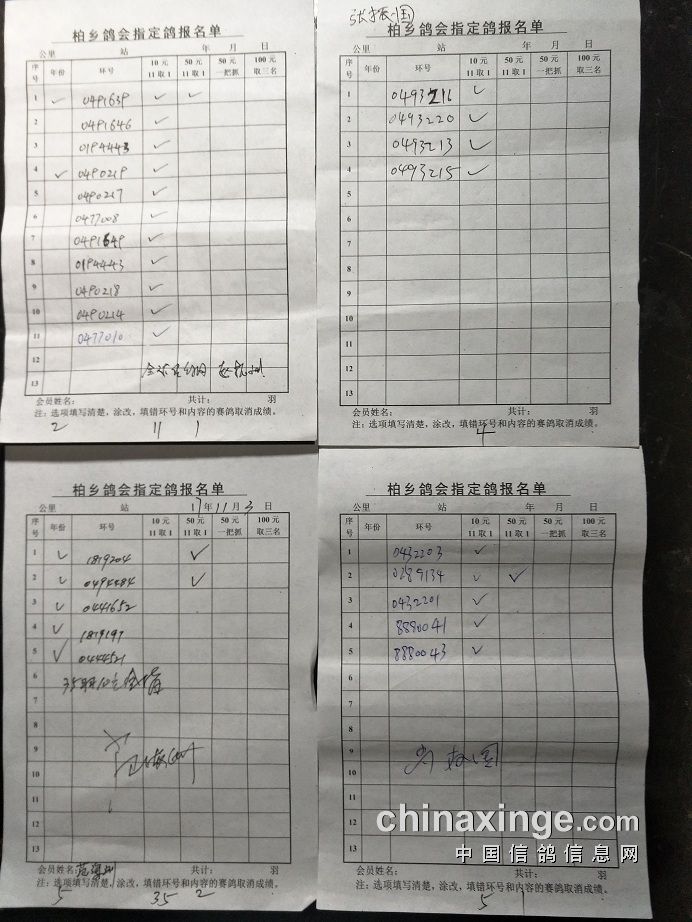 柏乡鸽会指定鸽报名单
公里 站 年 月 日
序号 年份 环号 10元 11取1 50元 11取1 50元 一把抓 100元 取三名
1 ✓ 0491639 ✓ ✓
2 0491646 ✓
3 0194443 ✓
4 ✓ 0490219 ✓
5 0490217 ✓
6 0477008 ✓
7 0491649 ✓
8 0194443 ✓
9 0490218 ✓
10 0490214 ✓
11 0477010 ✓
12
13
会员姓名: 共计: 羽
注: 选项填写清楚, 涂改, 填错环号和内容的赛鸽取消成绩。
2 11 1
张振国
柏乡鸽会指定鸽报名单
公里 站 年 月 日
序号 年份 环号 10元 11取1 50元 11取1 50元 一把抓 100元 取三名
1 0493216 ✓
2 0493220 ✓
3 0493213 ✓
4 0493215 ✓
5
6
7
8
9
10
11
12
13
会员姓名: 共计: 羽
注: 选项填写清楚, 涂改, 填错环号和内容的赛鸽取消成绩。
4
柏乡鸽会指定鸽报名单
公里 站 17年11月3日
序号 年份 环号 10元 11取1 50元 11取1 50元 一把抓 100元 取三名
1 ✓ 1819204 ✓
2 ✓ 0494484 ✓
3 ✓ 0441652
4 ✓ 1819197
5 ✓ 0444521
6 35羽10元
7
8
9
10
11
12
13
会员姓名: 共计: 羽
注: 选项填写清楚, 涂改, 填错环号和内容的赛鸽取消成绩。
5 35 2
柏乡鸽会指定鸽报名单
公里 站 年 月 日
序号 年份 环号 10元 11取1 50元 11取1 50元 一把抓 100元 取三名
1 0432203 ✓
2 0289134 ✓ ✓
3 0432201 ✓
4 8880041 ✓
5 8880043 ✓
6
7
8
9
10
11
12
13
会员姓名: 共计: 羽
注: 选项填写清楚, 涂改, 填错环号和内容的赛鸽取消成绩。
5 1
chinaxinge.com
中国信鸽信息网